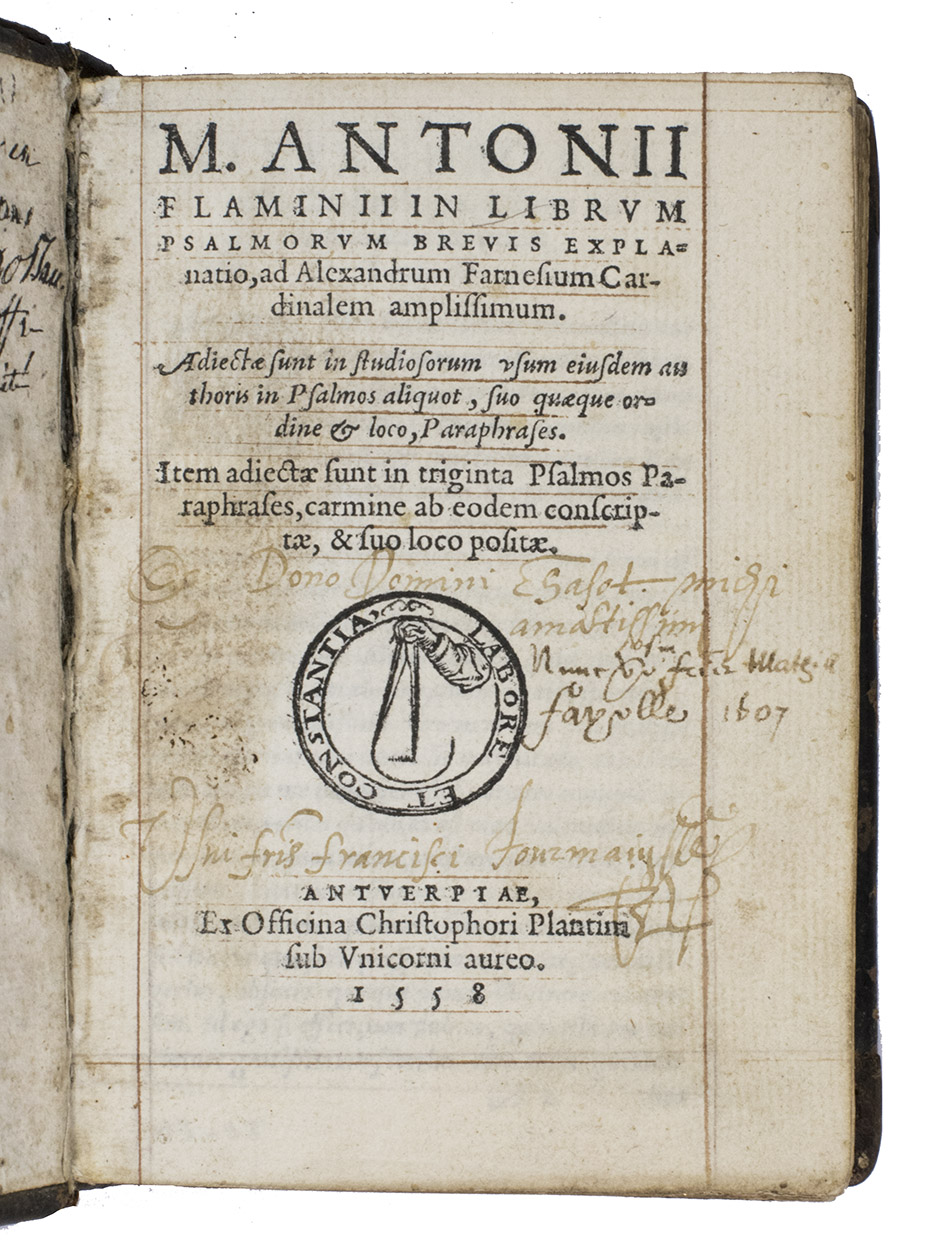 M. ANTONII
FLAMINII IN LIBRVM
PSALMORVM BREVIS EXPLA=
natio, ad Alexandrum Farnesium Car-
dinalem amplissimum.
Adiectæ sunt in studiosorum vsum eiusdem au
thoris in Psalmos aliquot, suo quæque or=
dine & loco, Paraphrases.
Item adiectæ sunt in triginta Psalmos Pa-
raphrases, carmine ab eodem conscrip-
tæ, & suo loco positæ.
Dono Domini michi
amantissimi
LABORE ET CONSTANTIA
Nunc
1607
fris francisci
ANTVERPIAE,
Ex Officina Christophori Plantini
sub Vnicorni aureo.
1558